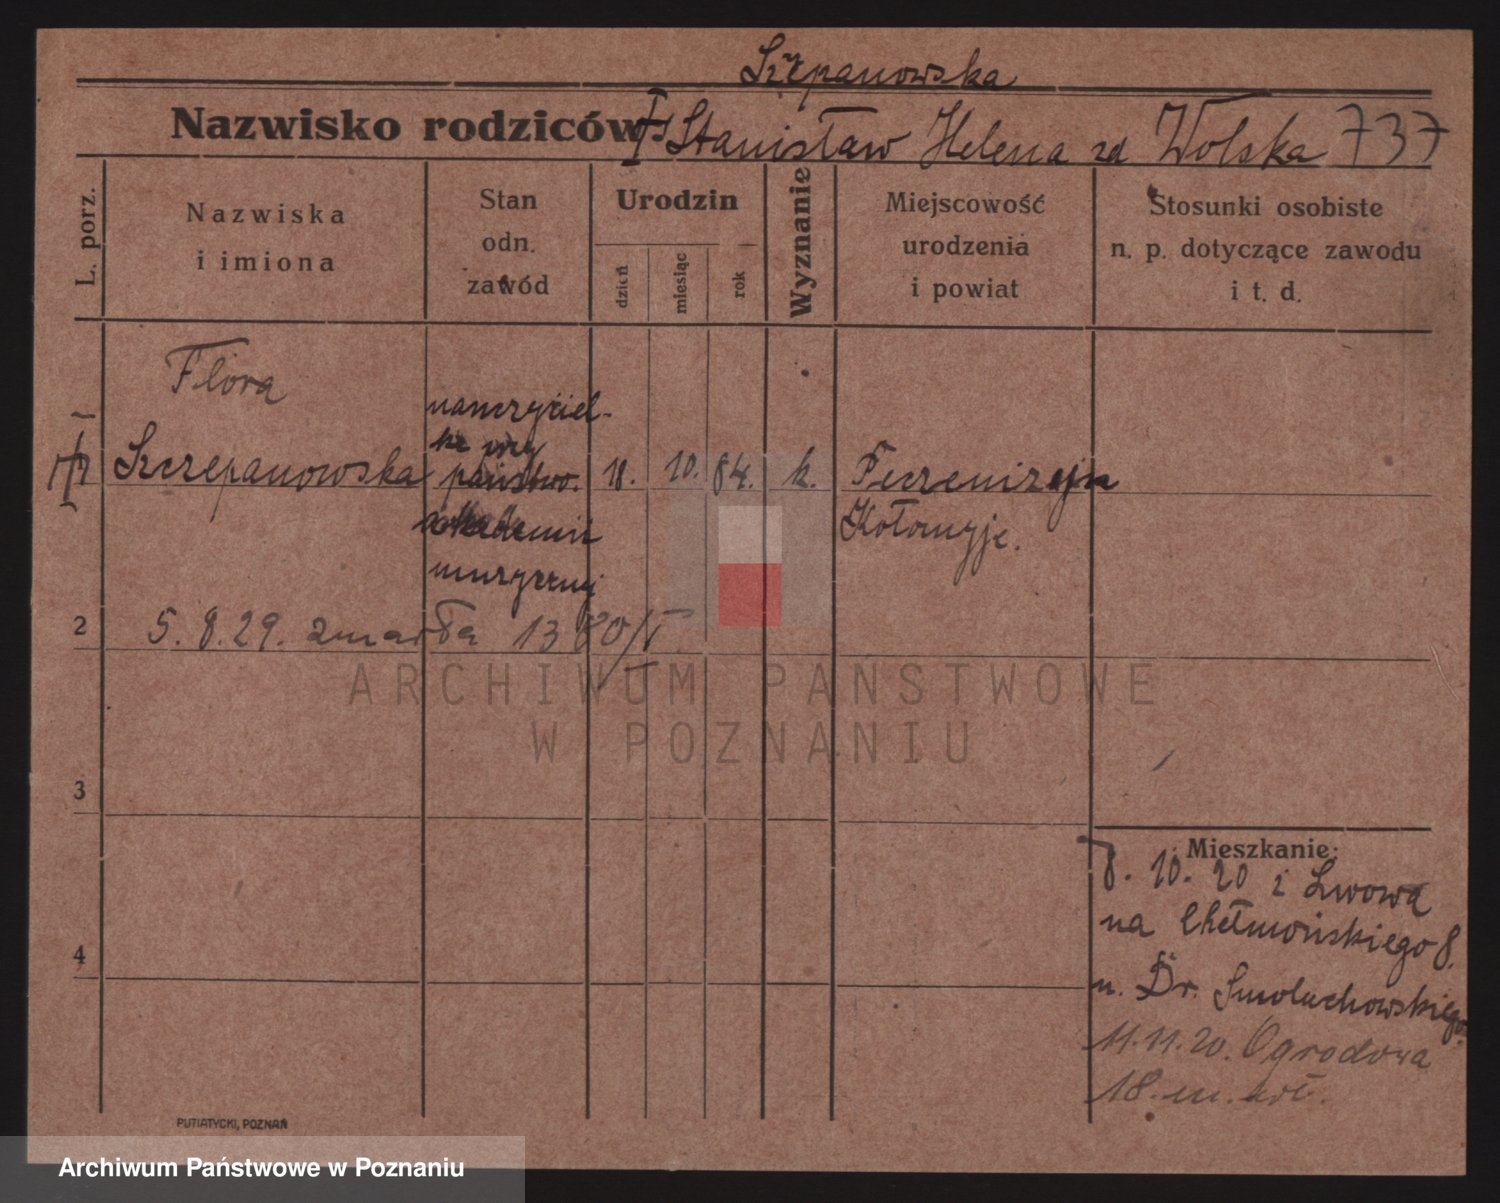 Szczepanowska
Nazwisko rodziców: Stanisław Helena zd Wolska 737
L. porz.
Nazwiska
i imiona
Stan
odn.
zawód
Urodzin
dzień
miesiąc
rok
Wyznanie
Miejscowość
urodzenia
i powiat
Stosunki osobiste
n. p. dotyczące zawodu
i t. d.
Flora
Szczepanowska
nauczyciel-
ka przy
państwo.
akademii
muzycznej
18. 10. 84. k.
Peczeniżyn
Kołomyje.
2
5. 8. 29. zmarła 1380/I
3
4
Mieszkanie:
8. 10. 20 z Lwowa
na Chełmońskiego 8.
u. Dr. Smoluchowskiego
11.11.20. Ogrodowa
18. m. wł.
PUTIATYCKI, POZNAŃ
ARCHIWUM PAŃSTWOWE
W POZNANIU
Archiwum Państwowe w Poznaniu